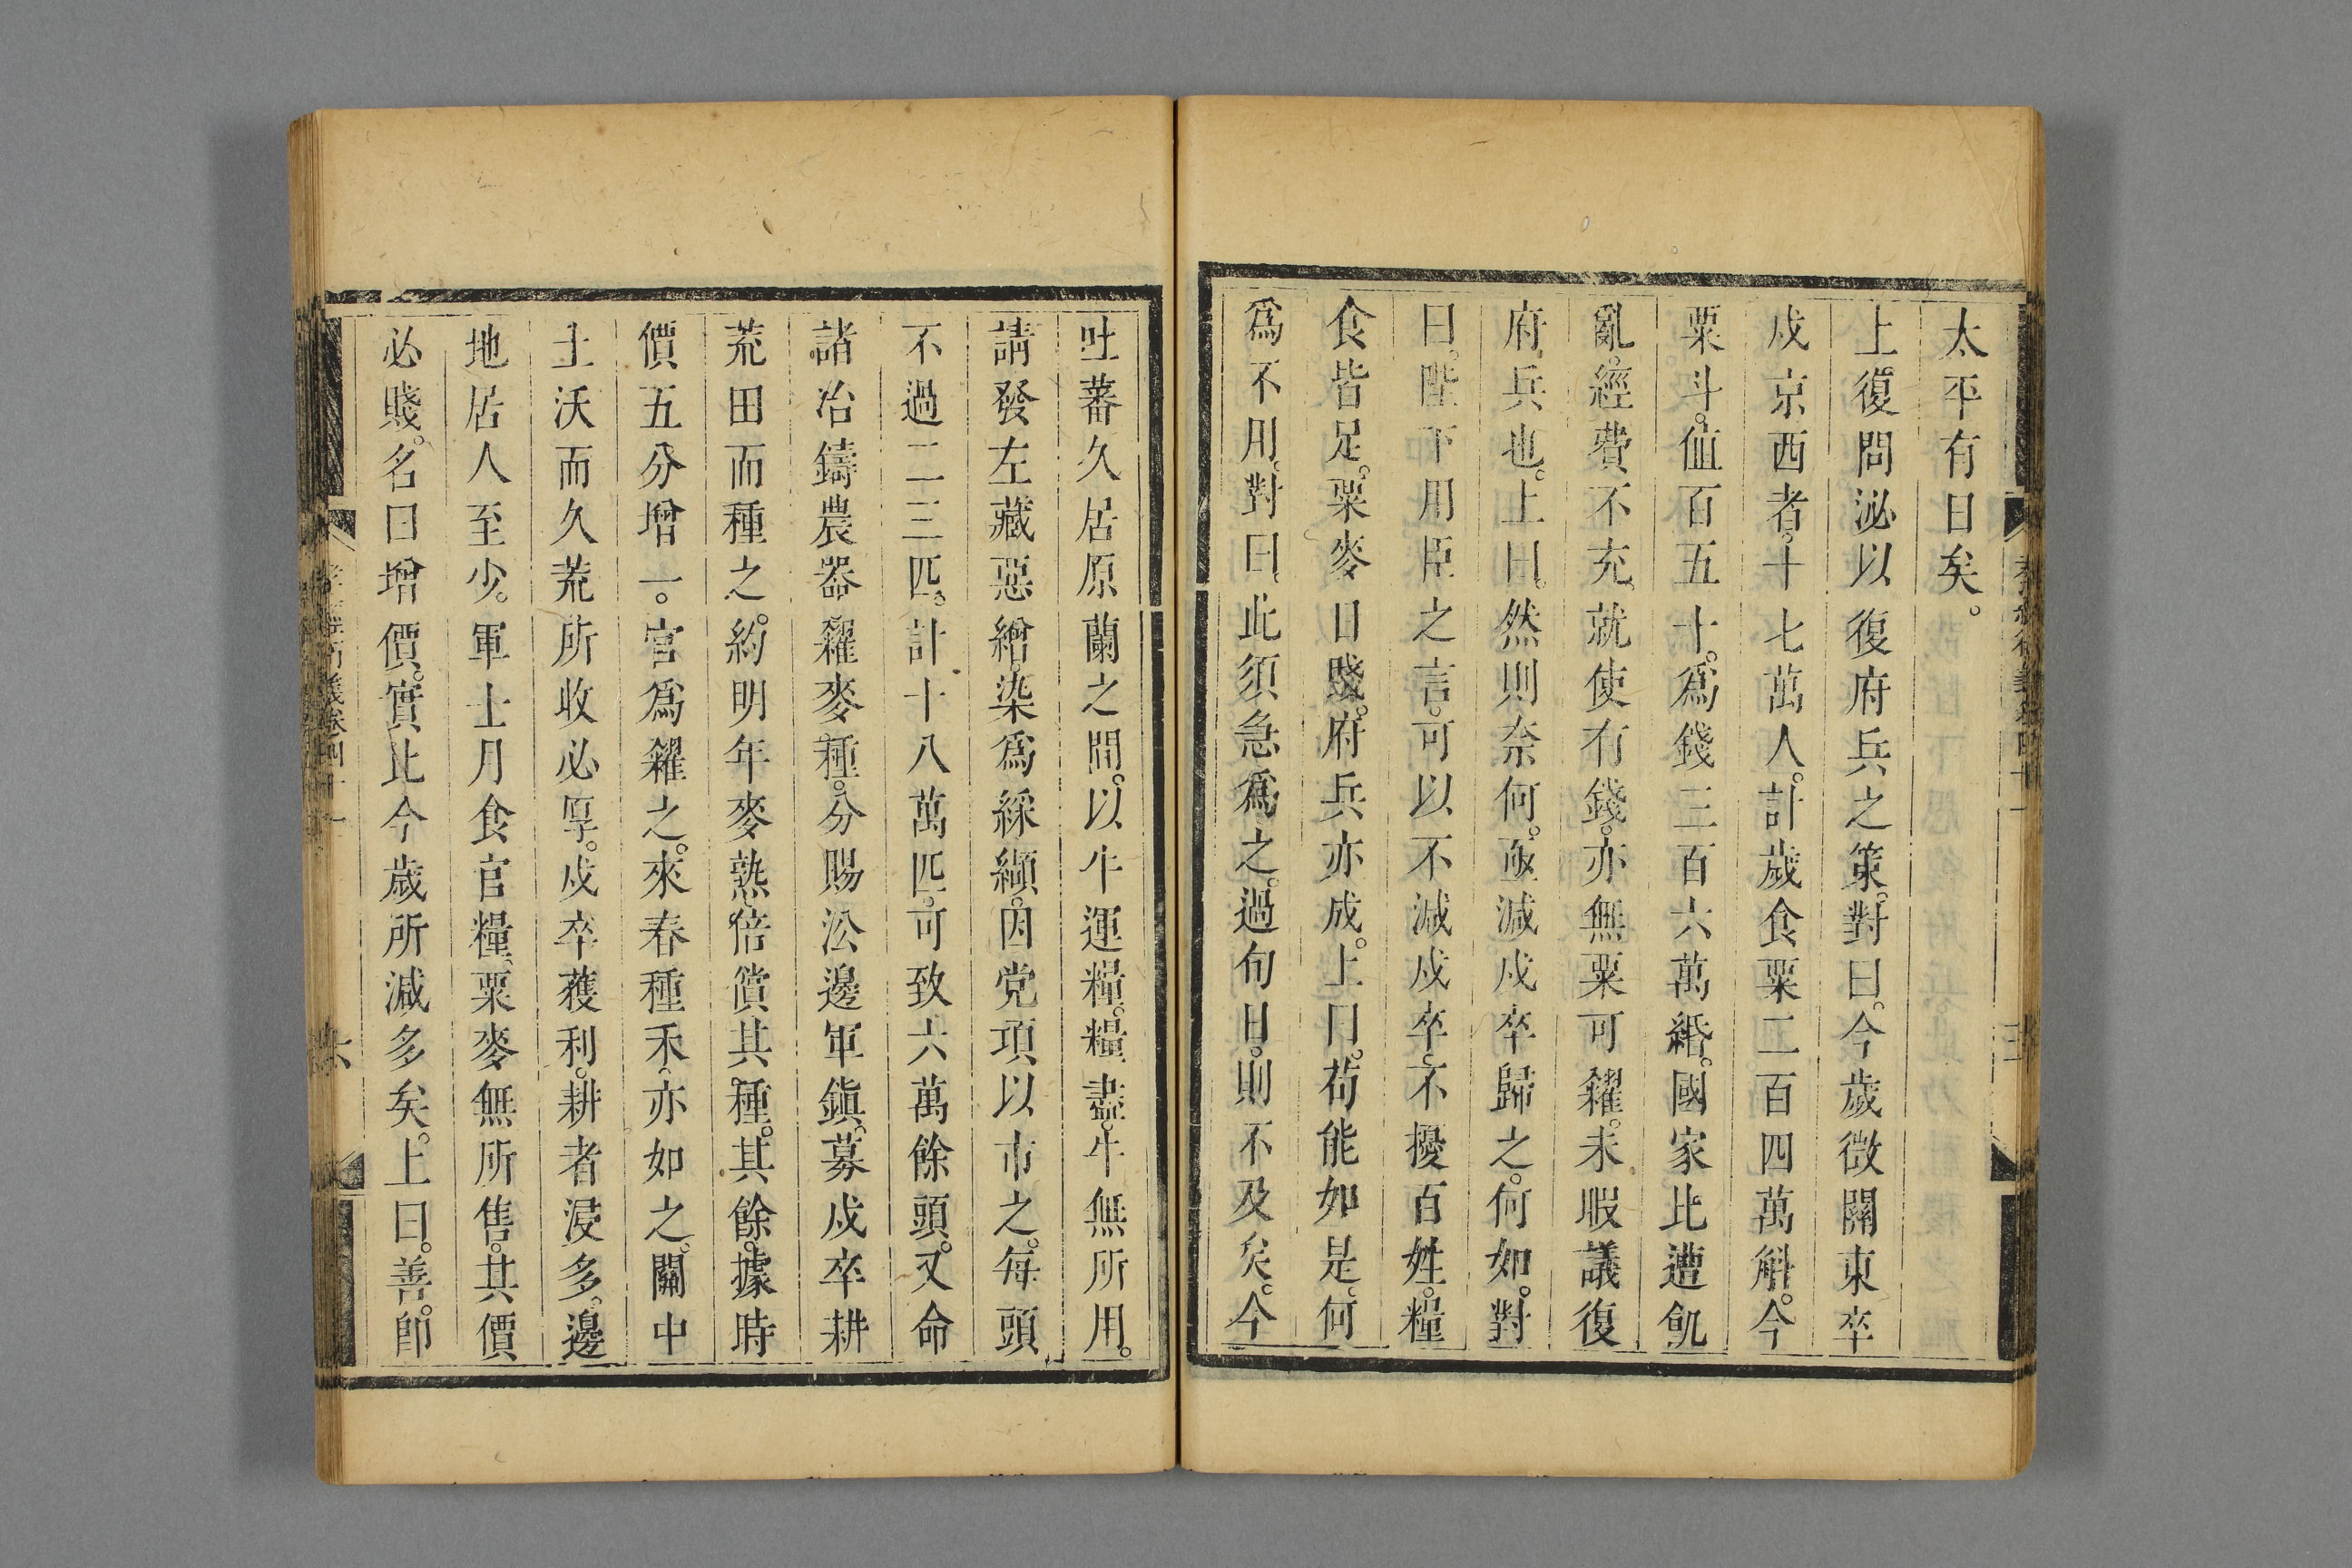 太平有日矣。
上。復問泌以復府兵之策。對曰。今歲徵關東卒
戍京西者。十七萬人。計歲食粟二百四萬斛。今
粟斗。值百五十。爲錢三百六萬緡。國家比遭飢
亂。經費不充。就使有錢。亦無粟可糴。未暇議復
府兵也。上曰。然則奈何。亟減戍卒歸之。何如。對
曰。陛下用臣之言。可以不減戍卒。不擾百姓。糧
食皆足。粟麥日賤。府兵亦成。上曰。苟能如是。何
爲不用。對曰。此須急爲之。過旬日。則不及矣。今
吐蕃久居原蘭之間。以牛運糧。糧盡。牛無所用。
請發左藏惡繒。染爲綵纈。因党項以市之。每頭
不過二三匹。計十八萬匹。可致六萬餘頭。又命
諸冶鑄農器。糴麥種。分賜沿邊軍鎭。募戍卒耕
荒田而種之。約明年麥熟。倍償其種。其餘。據時
價五分增一。官爲糴之。來春種禾。亦如之。關中
土沃而久荒。所收必厚。戍卒獲利。耕者浸多。邊
地居人至少。軍士月食官糧。粟麥無所售。其價
必賤。名曰增價。實比今歲所減多矣。上曰。善。卽